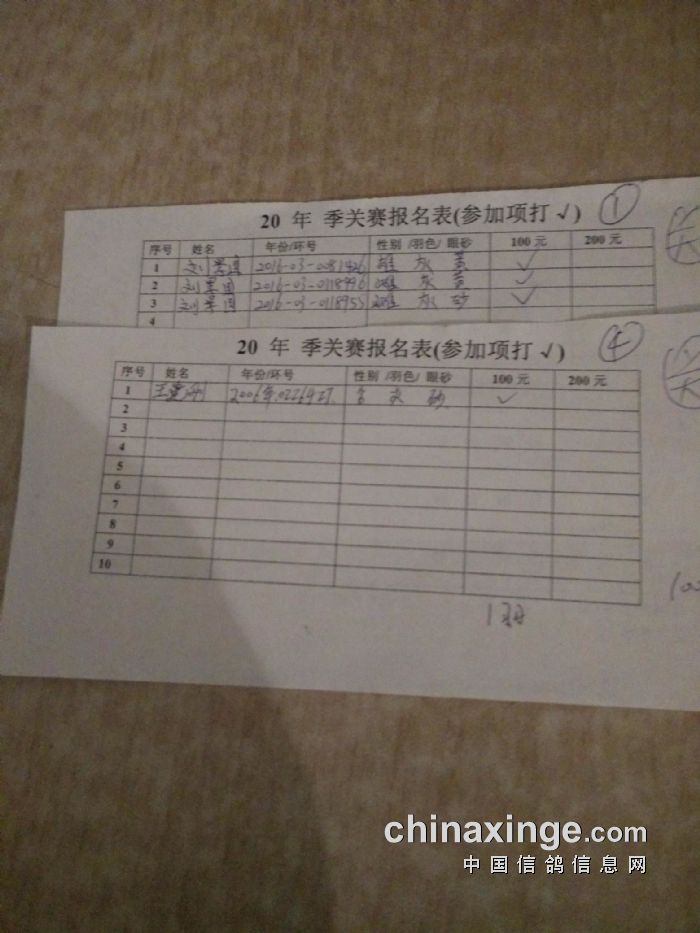 20 年 季关赛报名表(参加项打√) ①
序号 姓名 年份/环号 性别/羽色/眼砂 100元 200元
1 刘 2016-03-0081426 雄 灰 黄 √
2 刘军国 2016-03-0118996 雄 灰 黄 √
3 刘军国 2016-03-0118953 雄 灰 砂 √
4
20 年 季关赛报名表(参加项打√) ④
序号 姓名 年份/环号 性别/羽色/眼砂 100元 200元
1 王 2006年 灰 砂 √
2
3
4
5
6
7
8
9
10
1羽
chinaxinge.com
中国信鸽信息网